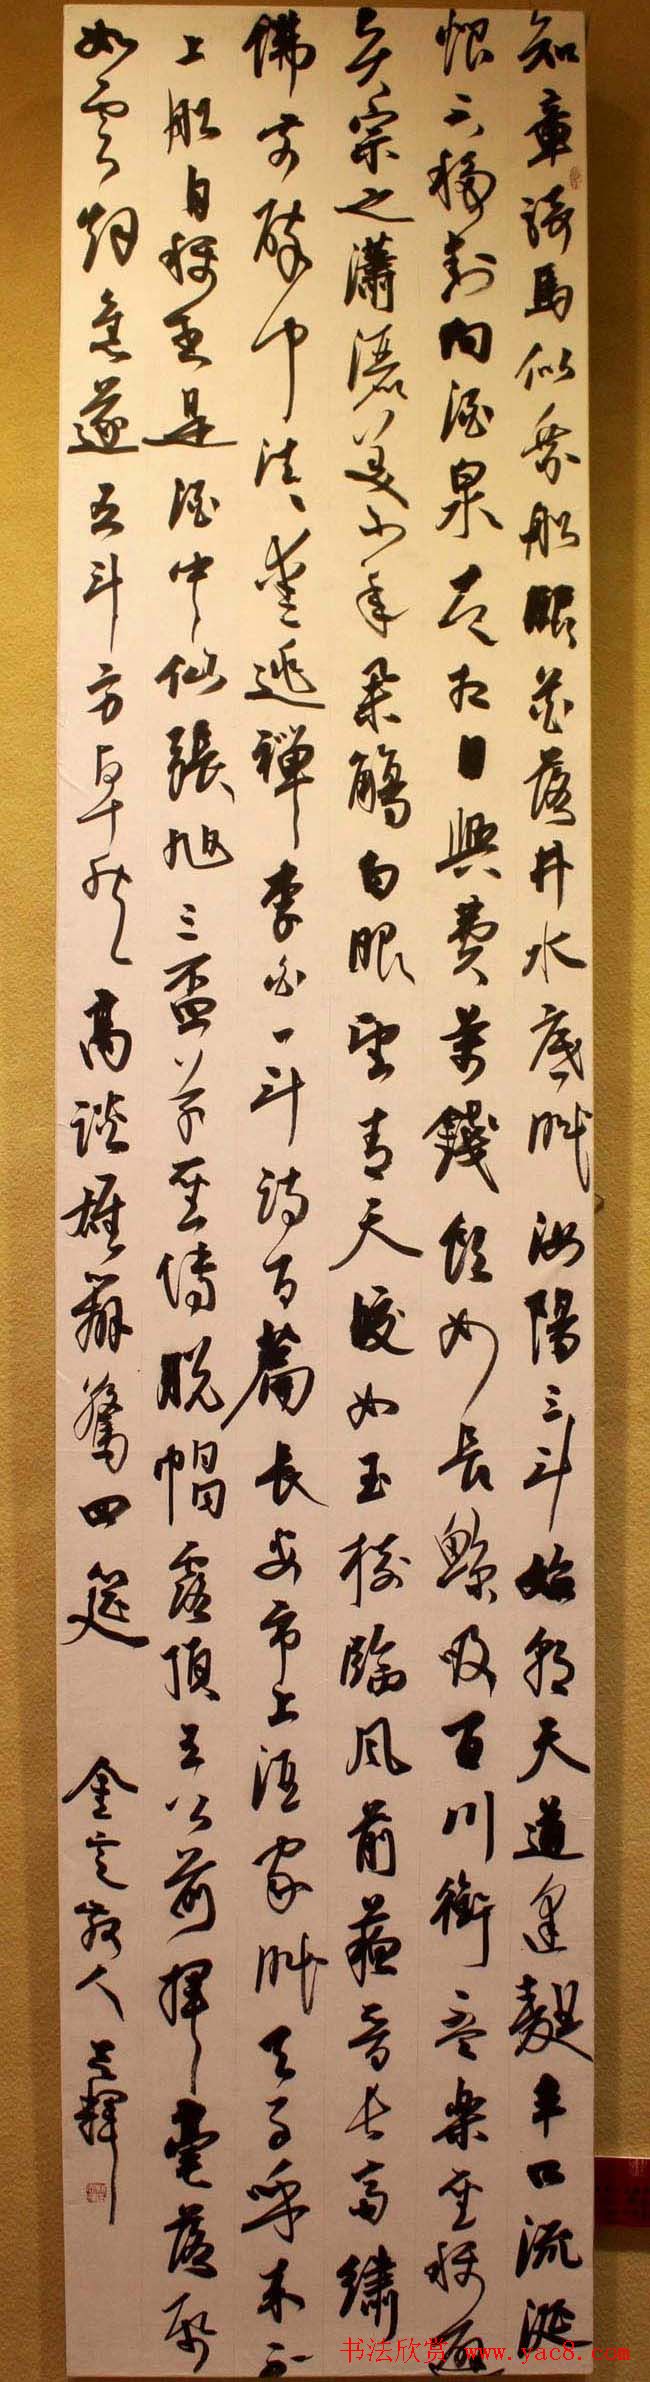 知章騎馬似乘船眼花落井水底眠汝陽三斗始朝天道逢麴車口流涎
恨不移封向酒泉左相日興費萬錢飲如長鯨吸百川銜杯樂聖稱避
賢宗之瀟灑美少年舉觴白眼望青天皎如玉樹臨風前蘇晉長齋繡
佛前醉中往、愛逃禪李白一斗詩百篇長安市上酒家眠天子呼來不
上船自稱臣是酒中仙張旭三盃草聖傳脫帽露頂王公前揮毫落紙
如雲煙焦遂五斗方卓然高談雄辯驚四筵
散人
书法欣赏 www.yac8.com